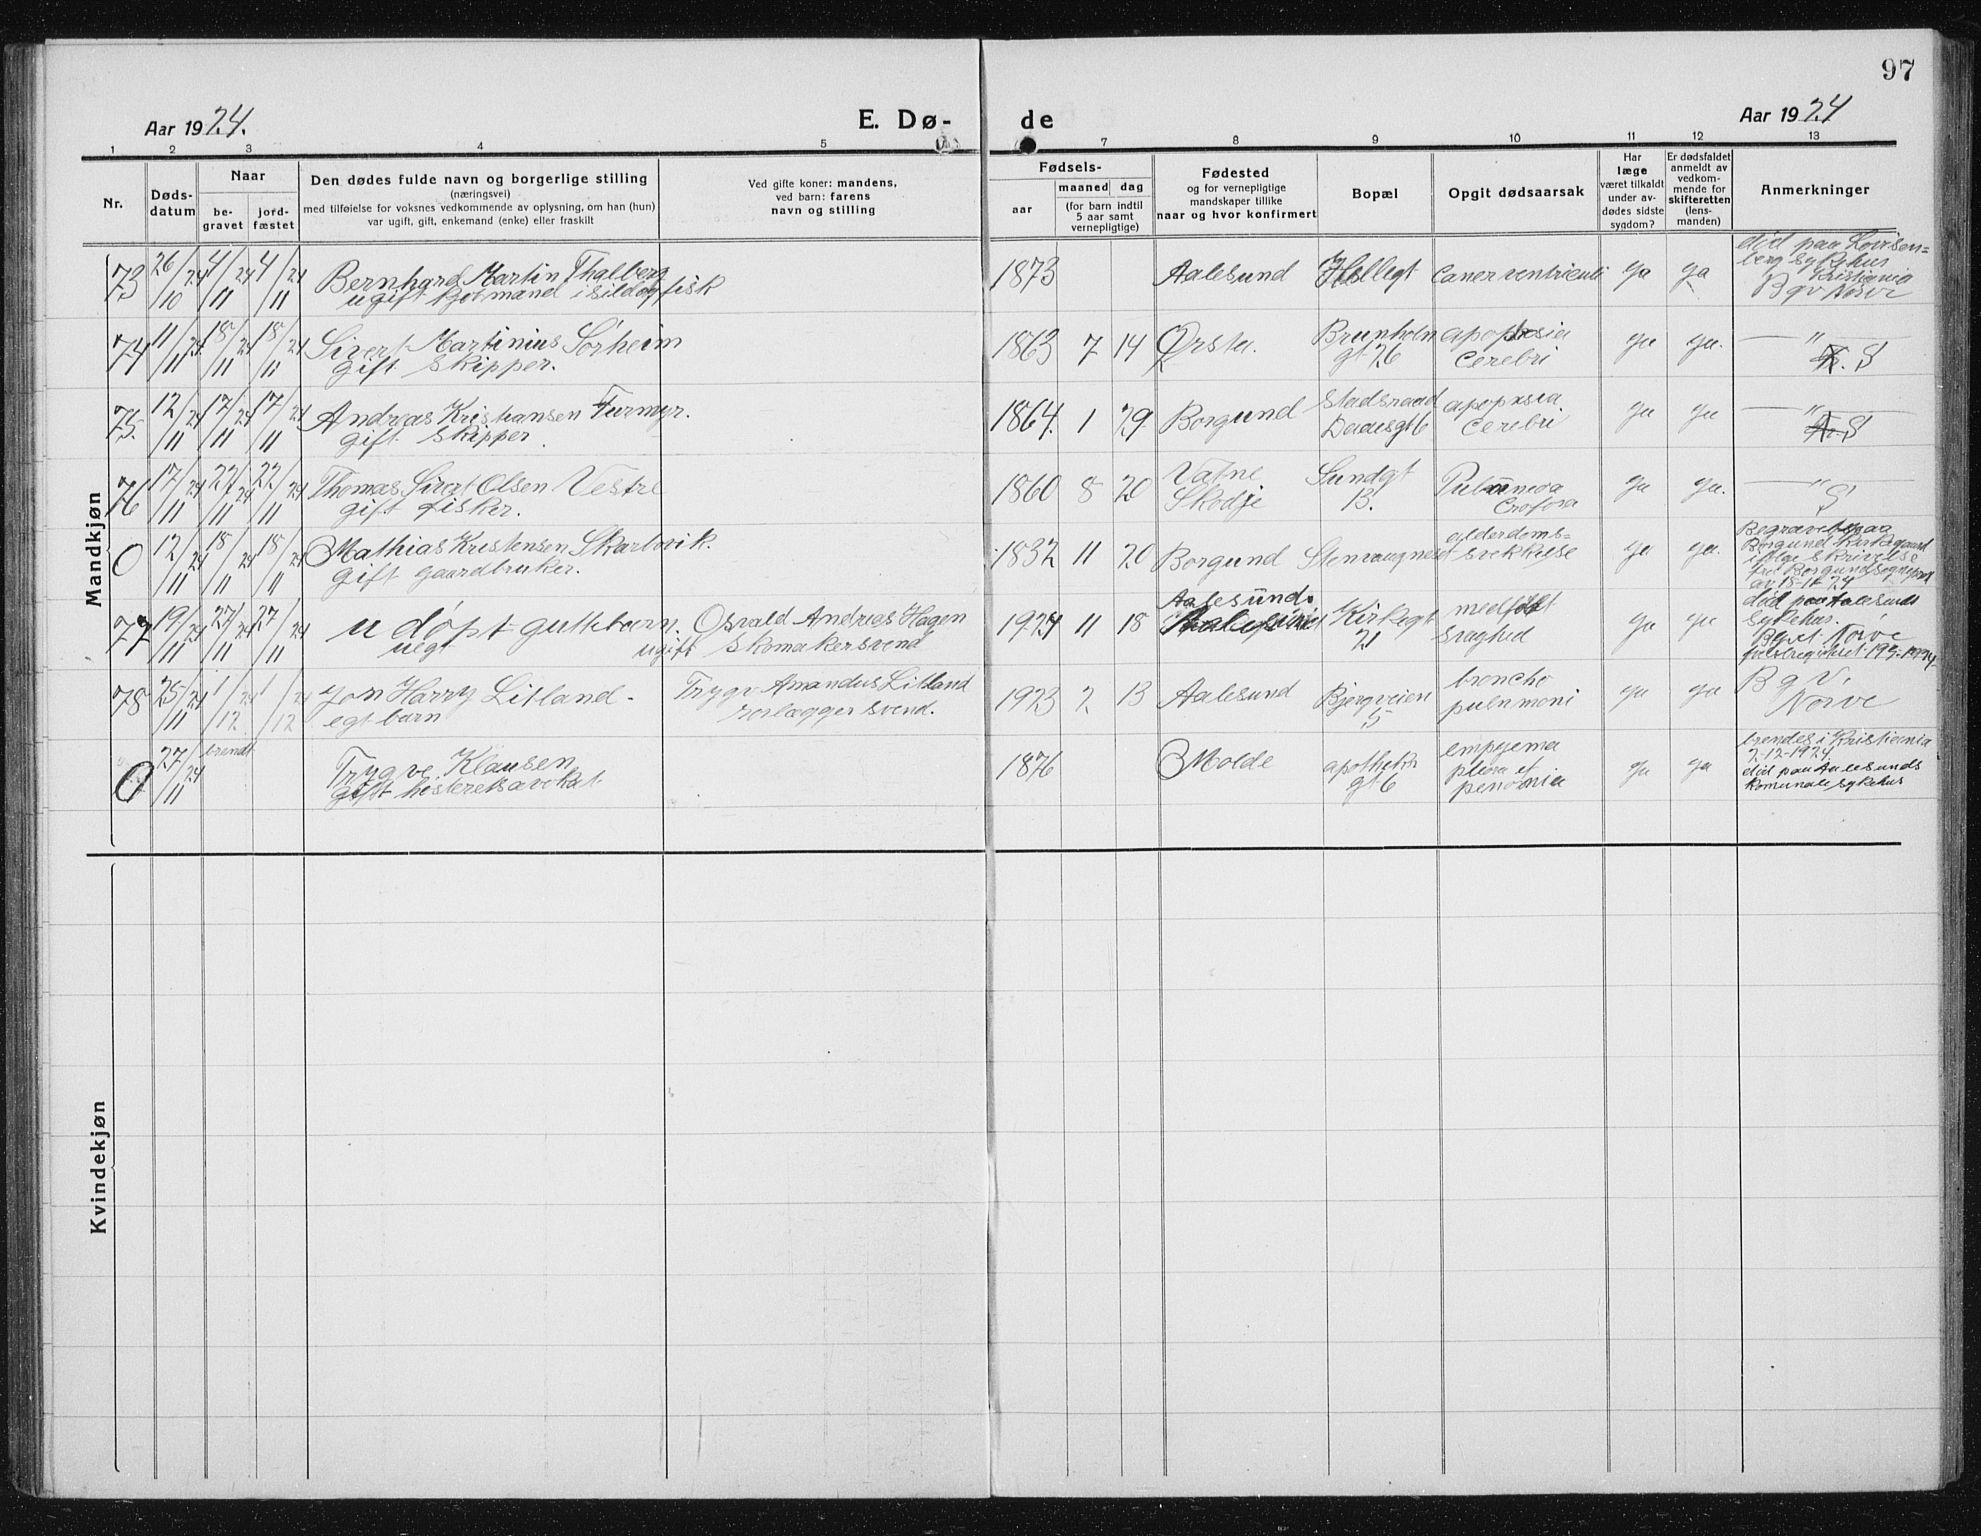 97
Aar 1924.
E. Dø-
de
Aar 1924
1 2 3 4 5 7 8 9 10 11 12 13
Nr.
Døds-
datum
Naar
be-
gravet
jord-
fæstet
Den dødes fulde navn og borgerlige stilling
(næringsvei)
med tilføielse for voksnes vedkommende av oplysning, om han (hun)
var ugift, gift, enkemand (enke) eller fraskilt
Ved gifte koner: mandens,
ved barn: farens
navn og stilling
Fødsels-
aar
maaned dag
(for barn indtil
5 aar samt
vernepligtige)
Fødested
og for vernepligtige
mandskaper tillike
naar og hvor konfirmert
Bopæl
Opgit dødsaarsak
Har
læge
været tilkaldt
under av-
dødes sidste
sygdom?
Er dødsfaldet
anmeldt av
vedkom-
mende for
skifteretten
(lens-
manden)
Anmerkninger
Mandkjøn
73 26/10 24 4/11 24 4/11 24 Bernhard Martin Thalberg
ugift formand i sild og fisk
1873 Aalesund Hellegt ja ja
død paa Lovisen=
berg sykehus
Kristiania
Bgv Nørve
74 11/11 24 18/11 24 18/11 24 Sivert Martinius Sørheim
gift skipper.
1863 7 14 Ørsta. Brunholm
gt 26
cerebri ja ja. — " —
S
75. 12/11 24 17/11 24 17/11 24 Andreas Kristiansen Furmyr.
gift skipper.
1864. 1 29 Borgund
cerebri ja ja — " —
S
76 17/11 24 22/11 24 22/11 24 Thomas Sivert Olsen Vestre
gift fisker.
1860 8 20 Vatne
Skodje
Sundgt
13.
ja ja. — " —
S
0 12/11 24 18/11 24 18/11 24 Mathias Kristensen Skarbøvik.
gift gaardbruker.
1832 11 20 Borgund
alderdoms=
svekkelse
ja ja.
Begravet paa
Borgund Kirkegaard
ifølge skrivelse
fra Borgund sogneprest
av 18-11-24
77 19/11 24 27/11 24 27/11 24 udøpt guttebarn.
uegt
Osvald Andreas Hagen
ugift skomakersvend
1924 11 18 Aalesund. Kirkegt
21
medfødt
svaghed
ja ja
død paa Aalesunds
sykehus.
Bgvt Nørve
78 25/11 24 1/12 24 1/12 24 Jon Harry Litland -
egt barn
Trygv Amandus Litland
rørlægger svend.
1923 2 13 Aalesund Bjørgveien
5
broncho
pulnmoni
ja ja
Bgv.
Nørve
0 27/11 24 brendt
Trygve Klausen
gift
1876 Molde
gt 6
empyema
pleura et
ja ja
brendes i Kristiania
2-12-1924
død paa Aalesunds
komunale sykehus
Kvindekjøn